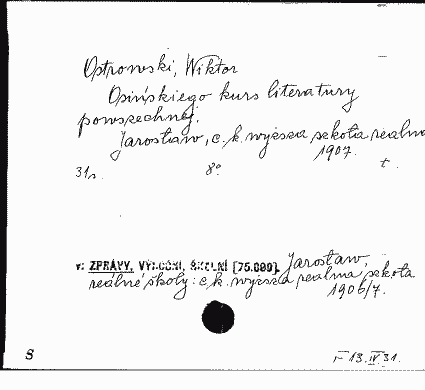 Ostrowski, Wiktor
Osińskiego kurs literatury
powszechnej.
Jarosław, c. k. wyższa szkoła realna
1907.
31s. 8°. t.
v: ZPRÁVY, VÝROČNÍ, ŠKOLNÍ [75.000]. Jarosław,
reálné školy: c. k. wyższa realna szkoła
1906/7.
S
13.IV.31.